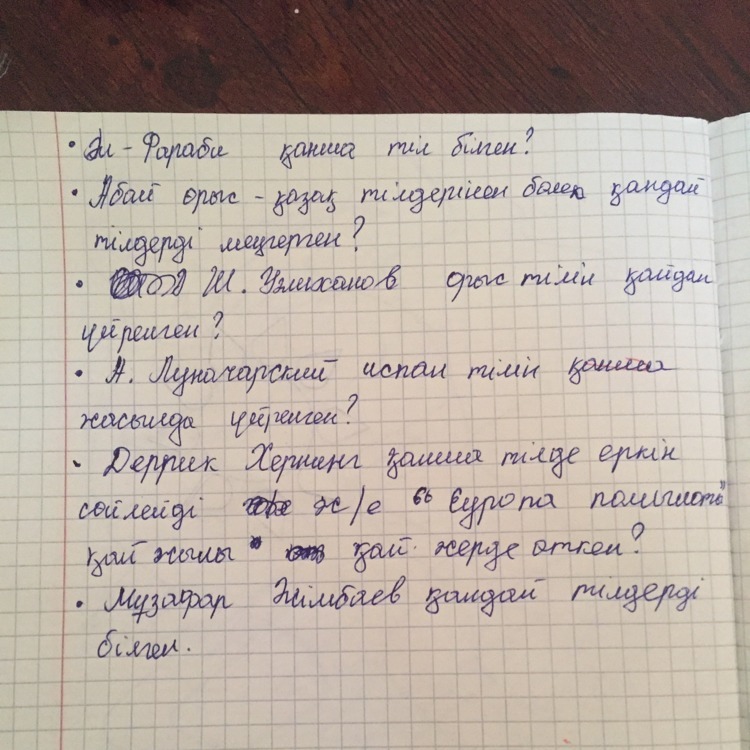 • Әл-Фараби қанша тіл білген?
• Абай орыс-қазақ тілдерінен бөлек қандай
тілдерді меңгерген?
• Ш. Уәлиханов орыс тілін қайдан
үйренген?
• А. Луначарский испан тілін қанша
жасында үйренген?
• Деррик Хернинг қанша тілде еркін
сөйлейді ж/е "Еуропа полиглоты"
қай жылы қай жерде өткен?
• Мұзафар Әлімбаев қандай тілдерді
білген.